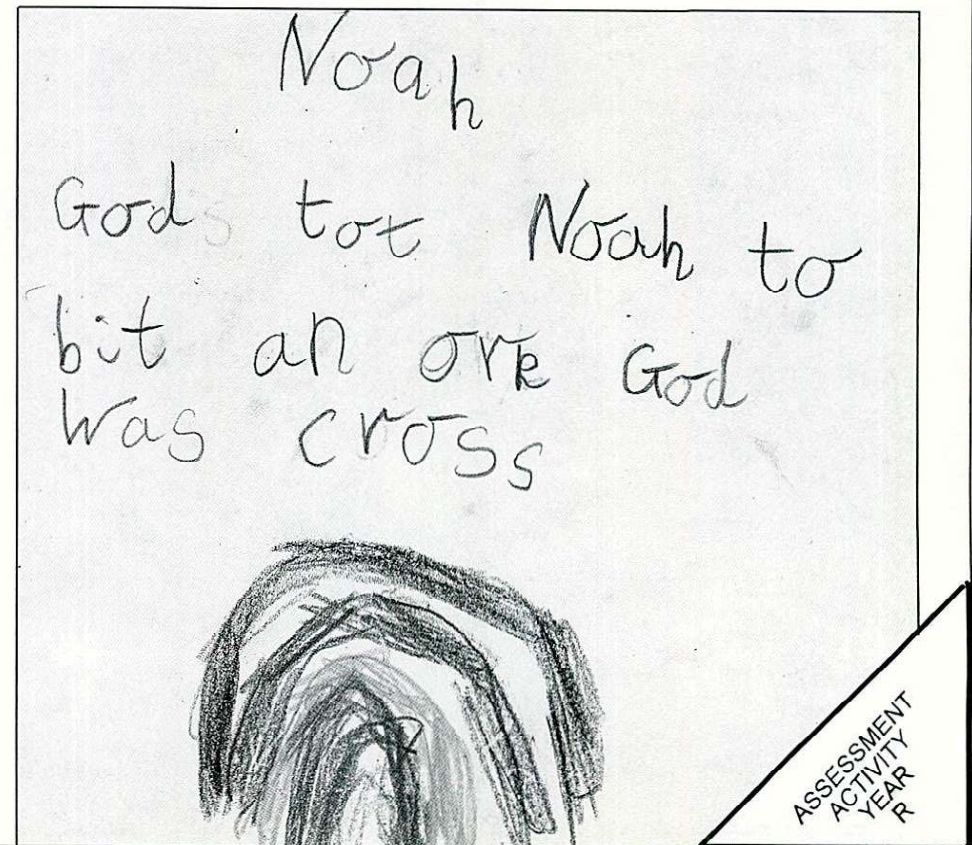 Noah
God tot Noah to
bit an ork God
was cross
ASSESSMENT
ACTIVITY
YEAR
R